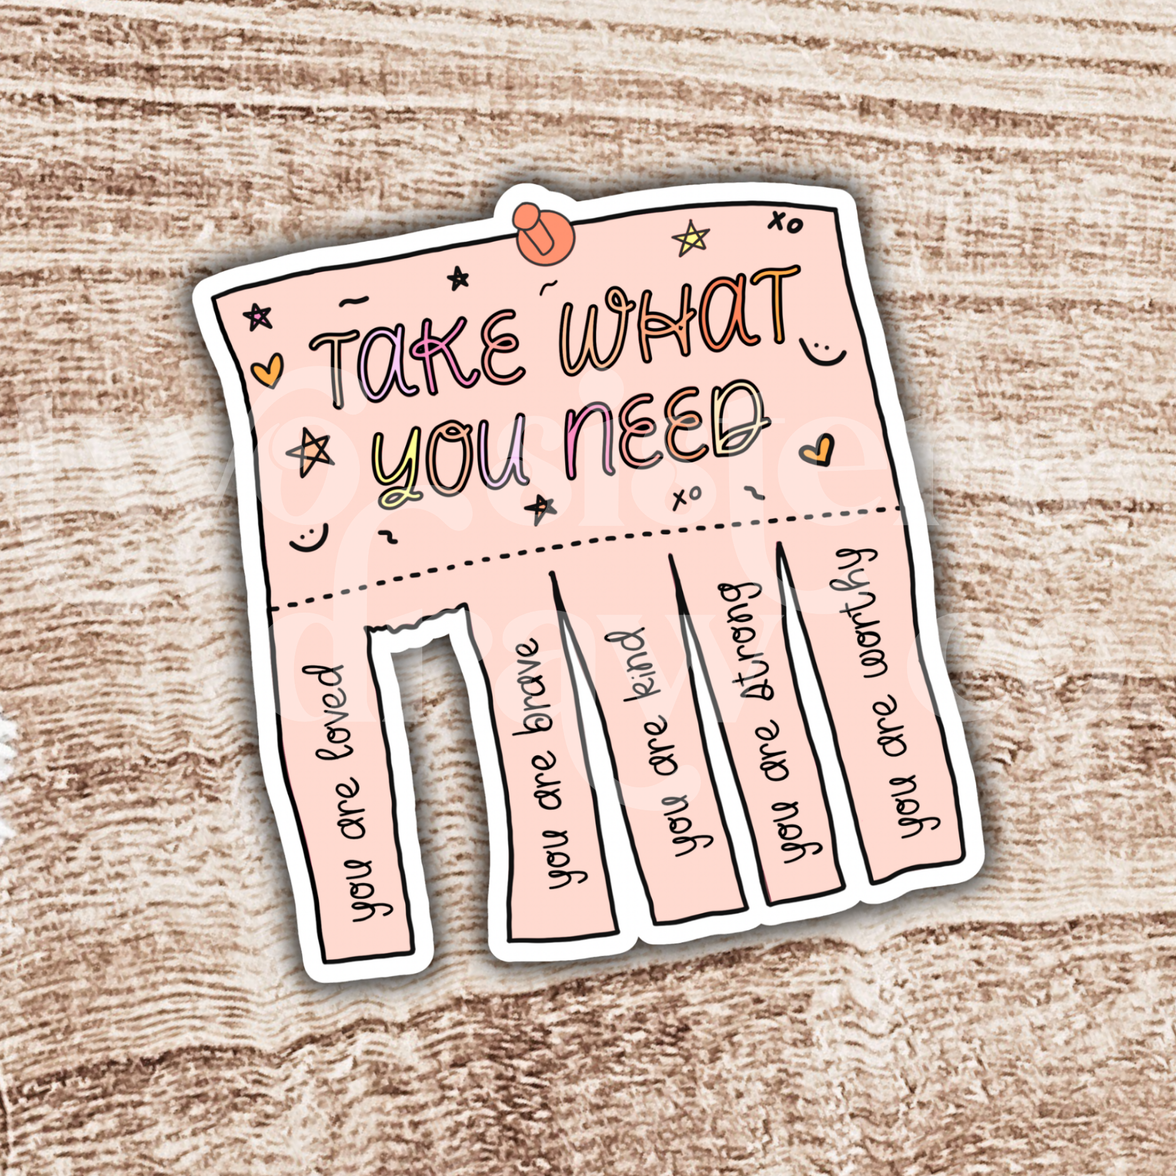 xo
TAKE WHAT
YOU NEED
xo
you are loved
you are brave
you are kind
you are strong
you are worthy